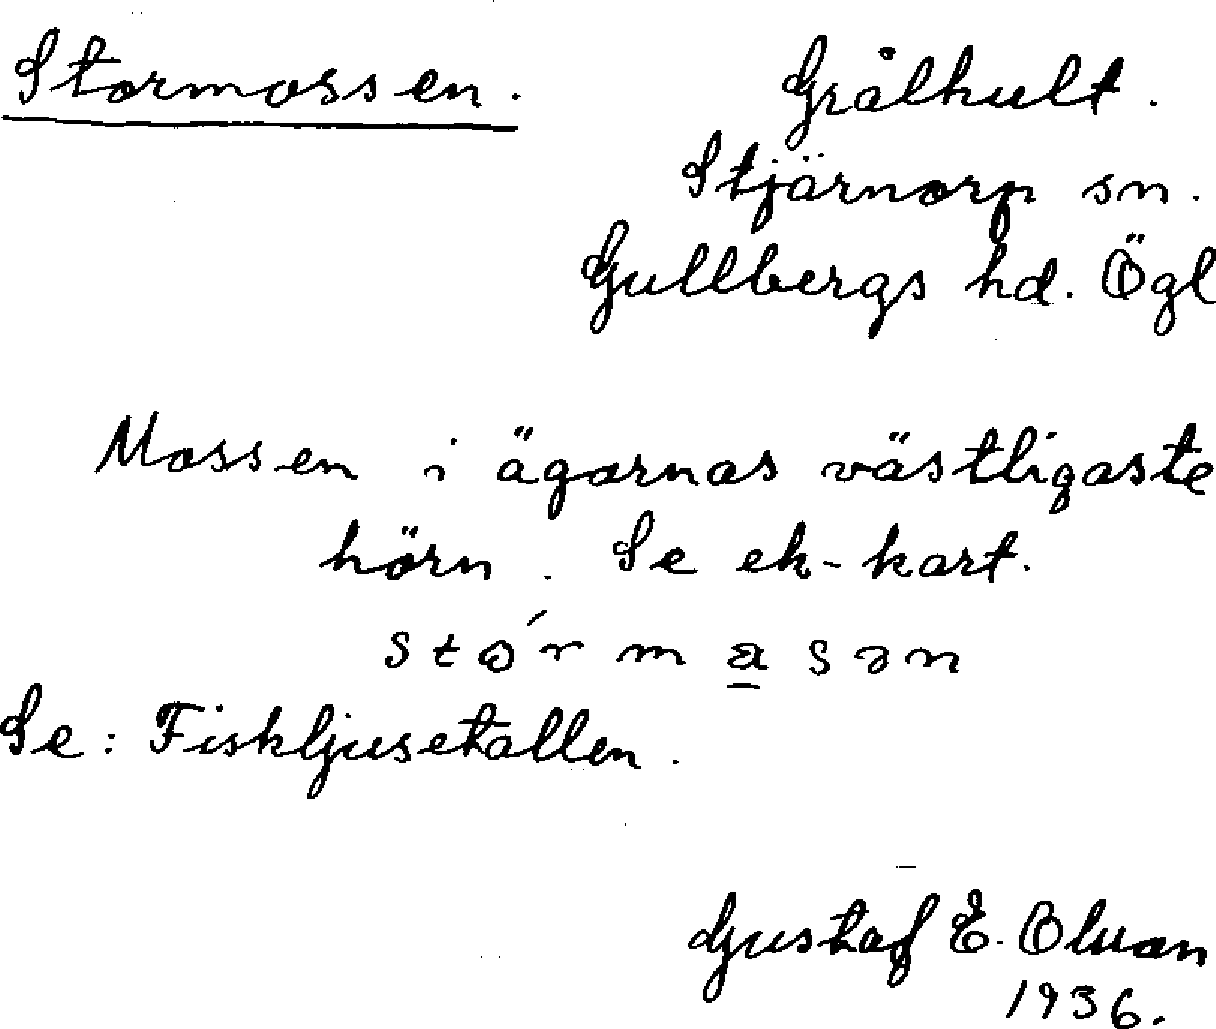 Stormossen. Grålhult.
Stjärnorp sn.
Gullbergs hd. Ögl
Mossen i ägornas västligaste
hörn. Se ek-kart.
Se: Fiskljusetallen.
Gustaf E. Olsson
1936.